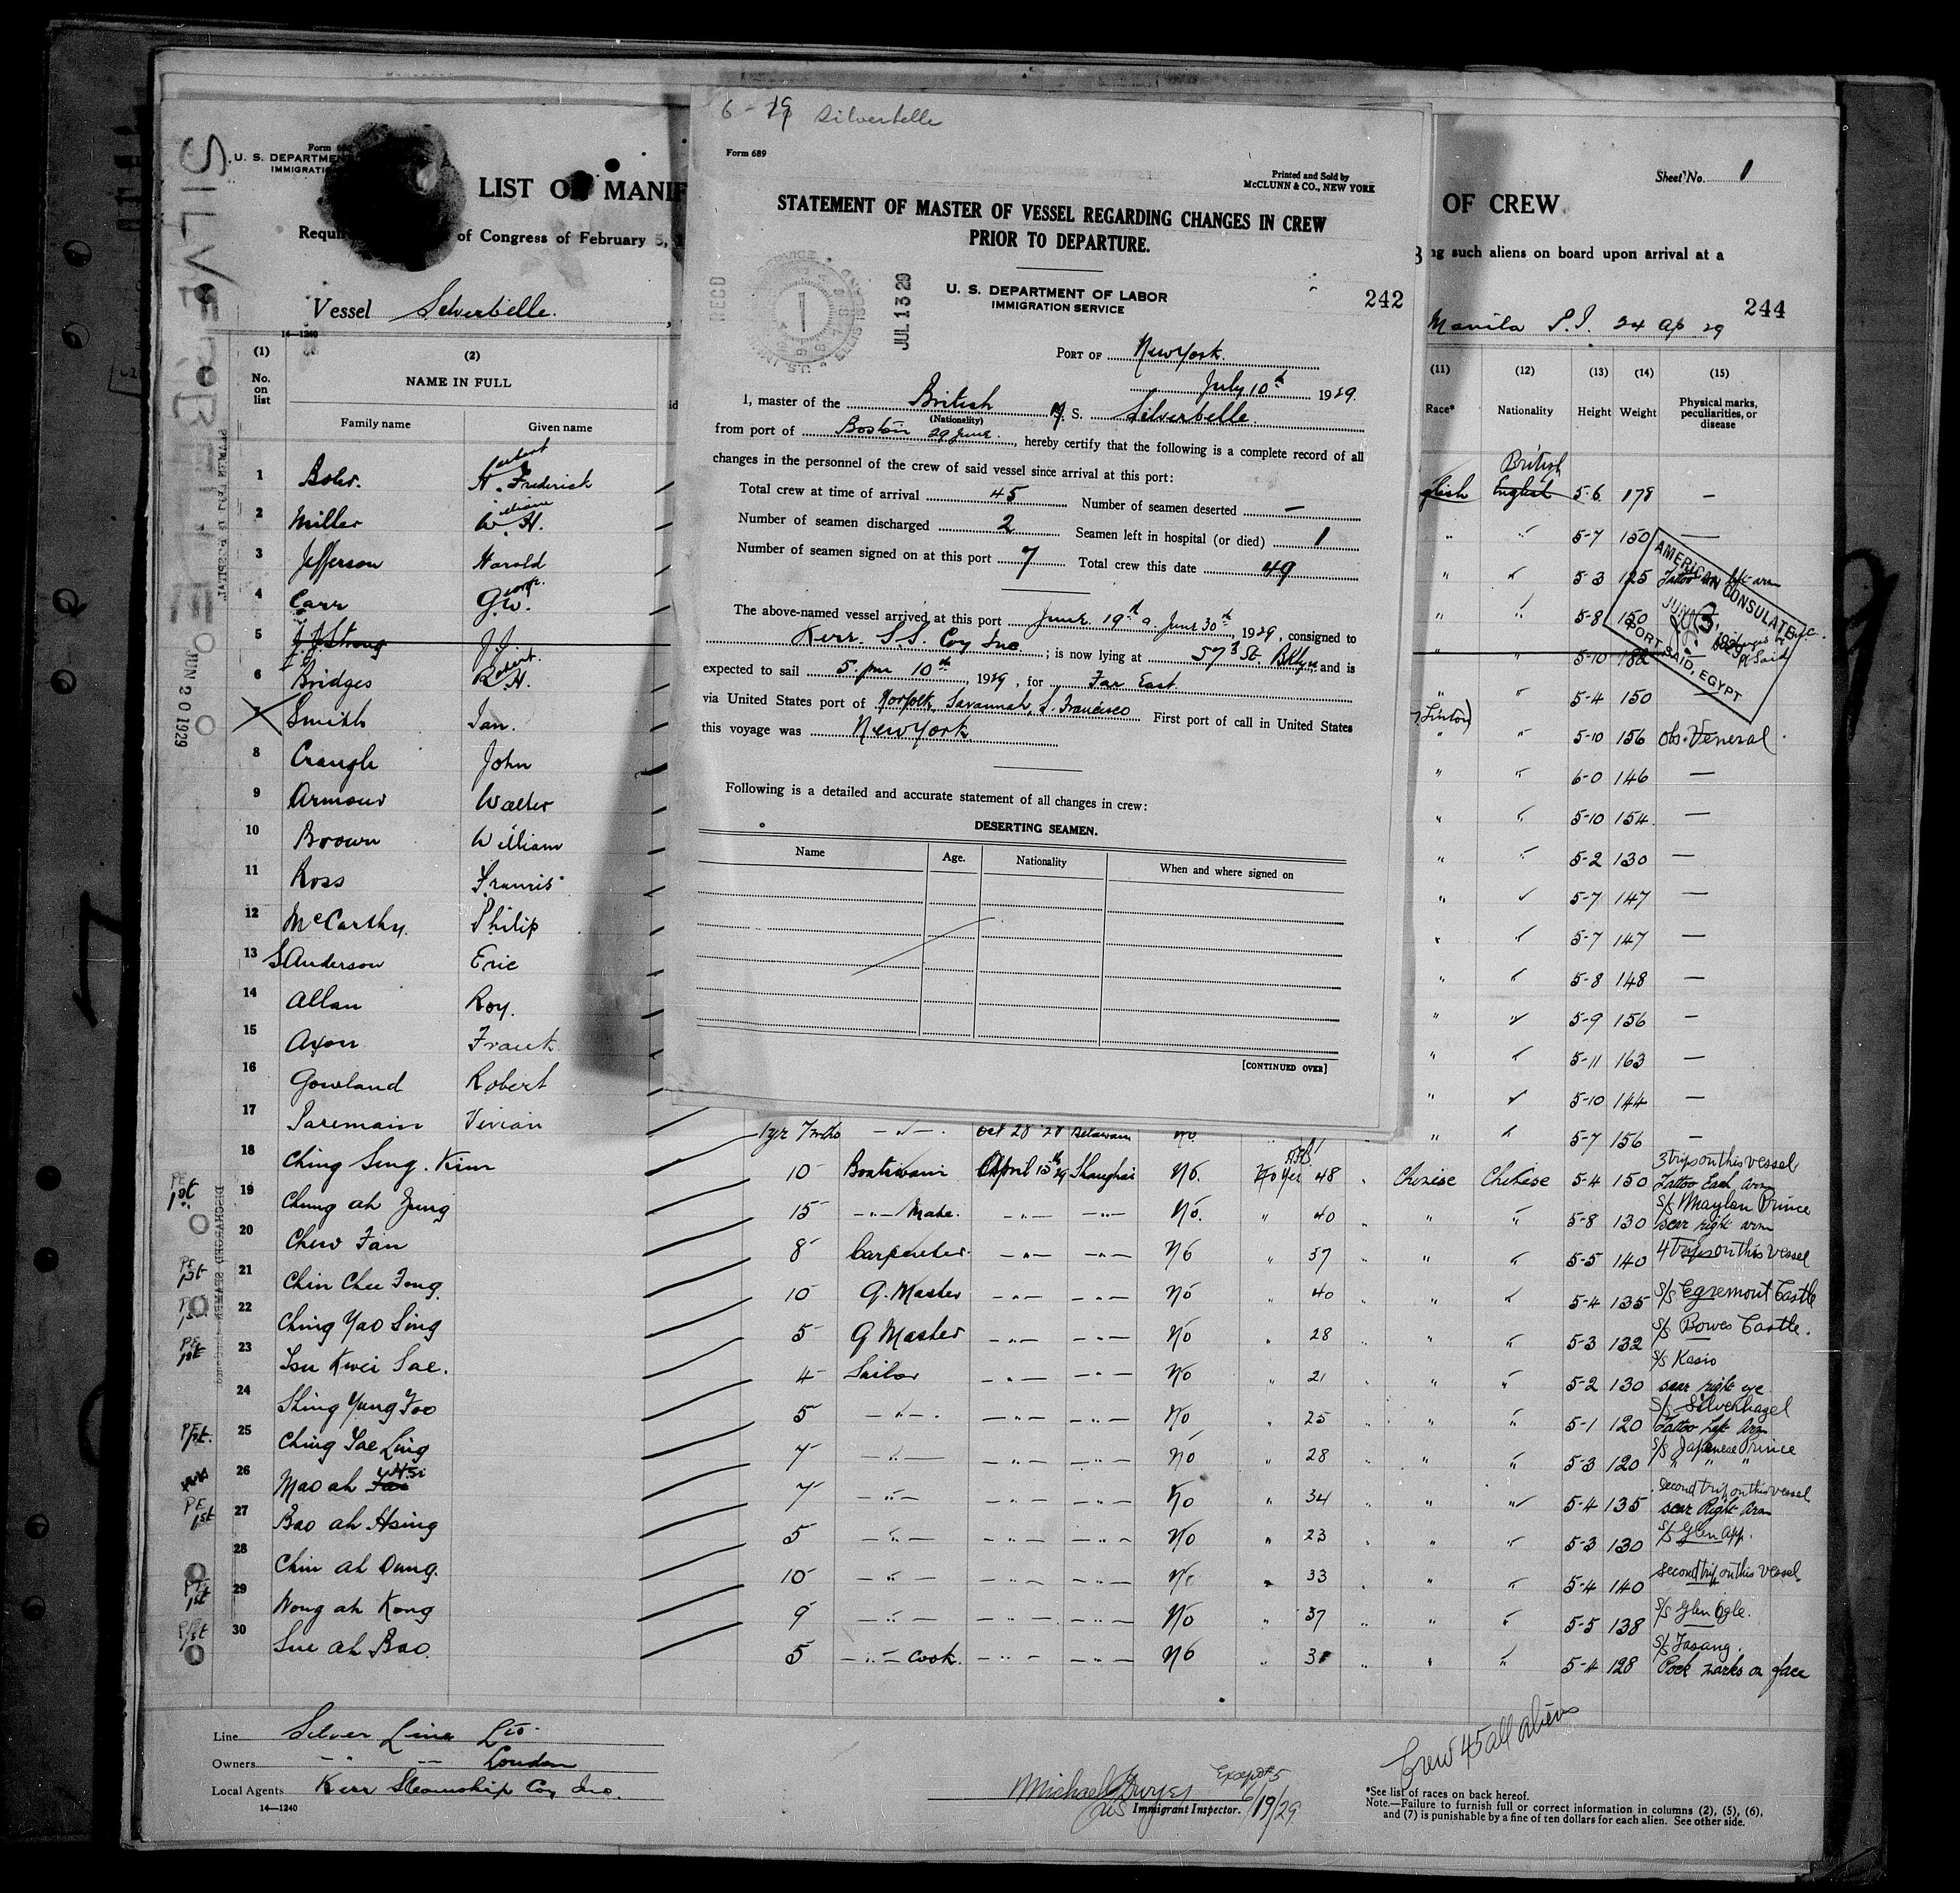 SILVERBELLE
JUN 20 1929
U. S. DEPARTMENT
IMMIGRATI
LIST OF MANIF
of Congress of February 5,
Vessel Silverbelle.
14-1240
(1)
No.
on
list
(2)
NAME IN FULL
Family name Given name
1 H. Frederick
2 Miller W. H.
3 Jefferson Harold
4 Carr G.W.
5 J.J. Strong J.J.
6 Bridges R.H.
7 Smith Ian.
8 Creugh John
9 Armour Walter
10 Brown William
11 Ross Francis
12 McCarthy. Philip
13 SAnderson Eric
14 Allan Roy.
15 Axon Frank
16 Gowland Robert
17 Paremain Vivian
18 Ching Sing. Kim
19 Chung ah Jung
20 Chew Fan
21 Chin Chee Fong
22 Ching Yao Sing
23 Tsu Kwei Sae.
24 Shing Yung Foo
25 Ching Tae Ling
26 Mao ah
27 Bao ah Hsing
28 Chin ah Dung.
29 Wong ah Kong
30 Sue ah Bao.
Line Silver Line Ltd
Owners " " London
Local Agents Kerr Steamship Coy Inc.
14-1240
6 - 19 Silverbelle
Form 689
Printed and Sold by
McCLUNN & CO., NEW YORK
STATEMENT OF MASTER OF VESSEL REGARDING CHANGES IN CREW
PRIOR TO DEPARTURE.
RECD
JUL 13 29
U. S. DEPARTMENT OF LABOR
IMMIGRATION SERVICE
242
PORT OF New York.
July 10th 1929.
I, master of the British M. S. Silverbelle.
(Nationality)
from port of Boston 29 June., hereby certify that the following is a complete record of all
changes in the personnel of the crew of said vessel since arrival at this port:
Total crew at time of arrival 45 Number of seamen deserted —
Number of seamen discharged 2 Seamen left in hospital (or died) 1
Number of seamen signed on at this port 7 Total crew this date 49
The above-named vessel arrived at this port June 19th a. June 30th, 1929, consigned to
Kerr. S.S. Coy Inc; is now lying at 57th St. Bklyn and is
expected to sail 5. pm 10th, 1929, for Far East.
via United States port of Norfolk, Savannah, S. Francisco First port of call in United States
this voyage was New York
Following is a detailed and accurate statement of all changes in crew:
DESERTING SEAMEN.
Name Age. Nationality When and where signed on
[CONTINUED OVER]
Sheet No. 1
OF CREW
ng such aliens on board upon arrival at a
244
Manila P.I. 24 Ap 29
(11) (12) (13) (14) (15)
Race* Nationality Height Weight Physical marks,
peculiarities, or
disease
British
glish English 5-6 178 —
" " 5-7 150 —
" " 5-3 125 Tattoo on left arm
" " 5-8 150
" " 5-10 182
" " 5-4 150
" " 5-10 156 Obs. Veneral.
" " 6-0 146 —
" " 5-10 154. —
" " 5-2 130 —
" " 5-7 147 —
" " 5-7 147 —
" " 5-8 148 —
" " 5-9 156 —
" " 5-11 163 —
" " 5-10 144 —
" " 5-7 156 —
AMERICAN CONSULATE
PORT SAID, EGYPT
1yr 7mths Oct 28 '28 no.
10 Boatswain April 15th 29 Shanghai No. Yes 48 " Chinese Chinese 5-4 150 3 trips on this vessel Tattoo Each Arm
15 " Mate. " " No. " 40 " " " 5-8 130 S/S Maylan Prince scar right arm
8 Carpenter. " " No " 37 " " " 5-5 140 4 trips on this vessel
10 Q. Master " " No " 40 " " " 5-4 135 S/S Egremont Castle
5 Q Master " " No " 28 " " " 5-3 132 S/S Bowes Castle.
4 Sailor " " No " 21 " " " 5-2 130 S/S Kasio scar right eye
5 " " " No " 25 " " " 5-1 120 S/S Silverhazel Tattoo Left Arm
7 " " " No " 28 " " " 5-3 120 S/S Japanese Prince " " "
7 " " " No " 34 " " " 5-4 135 Second trip on this vessel scar Right Arm
5 " " " No " 23 " " " 5-3 130 S/S Glen App.
10 " " " No " 33 " " " 5-4 140 second trip on this vessel.
9 " " " No " 37 " " " 5-5 138 S/S Glen Ogle.
5 " cook. " " No " 3 " " " 5-4 128 S/S Fasang. Pock marks on face
Crew 45 all aliens
Except #5
Michael
US Immigrant Inspector. 6/19/29
*See list of races on back hereof.
Note.—Failure to furnish full or correct information in columns (2), (5), (6),
and (7) is punishable by a fine of ten dollars for each alien. See other side.